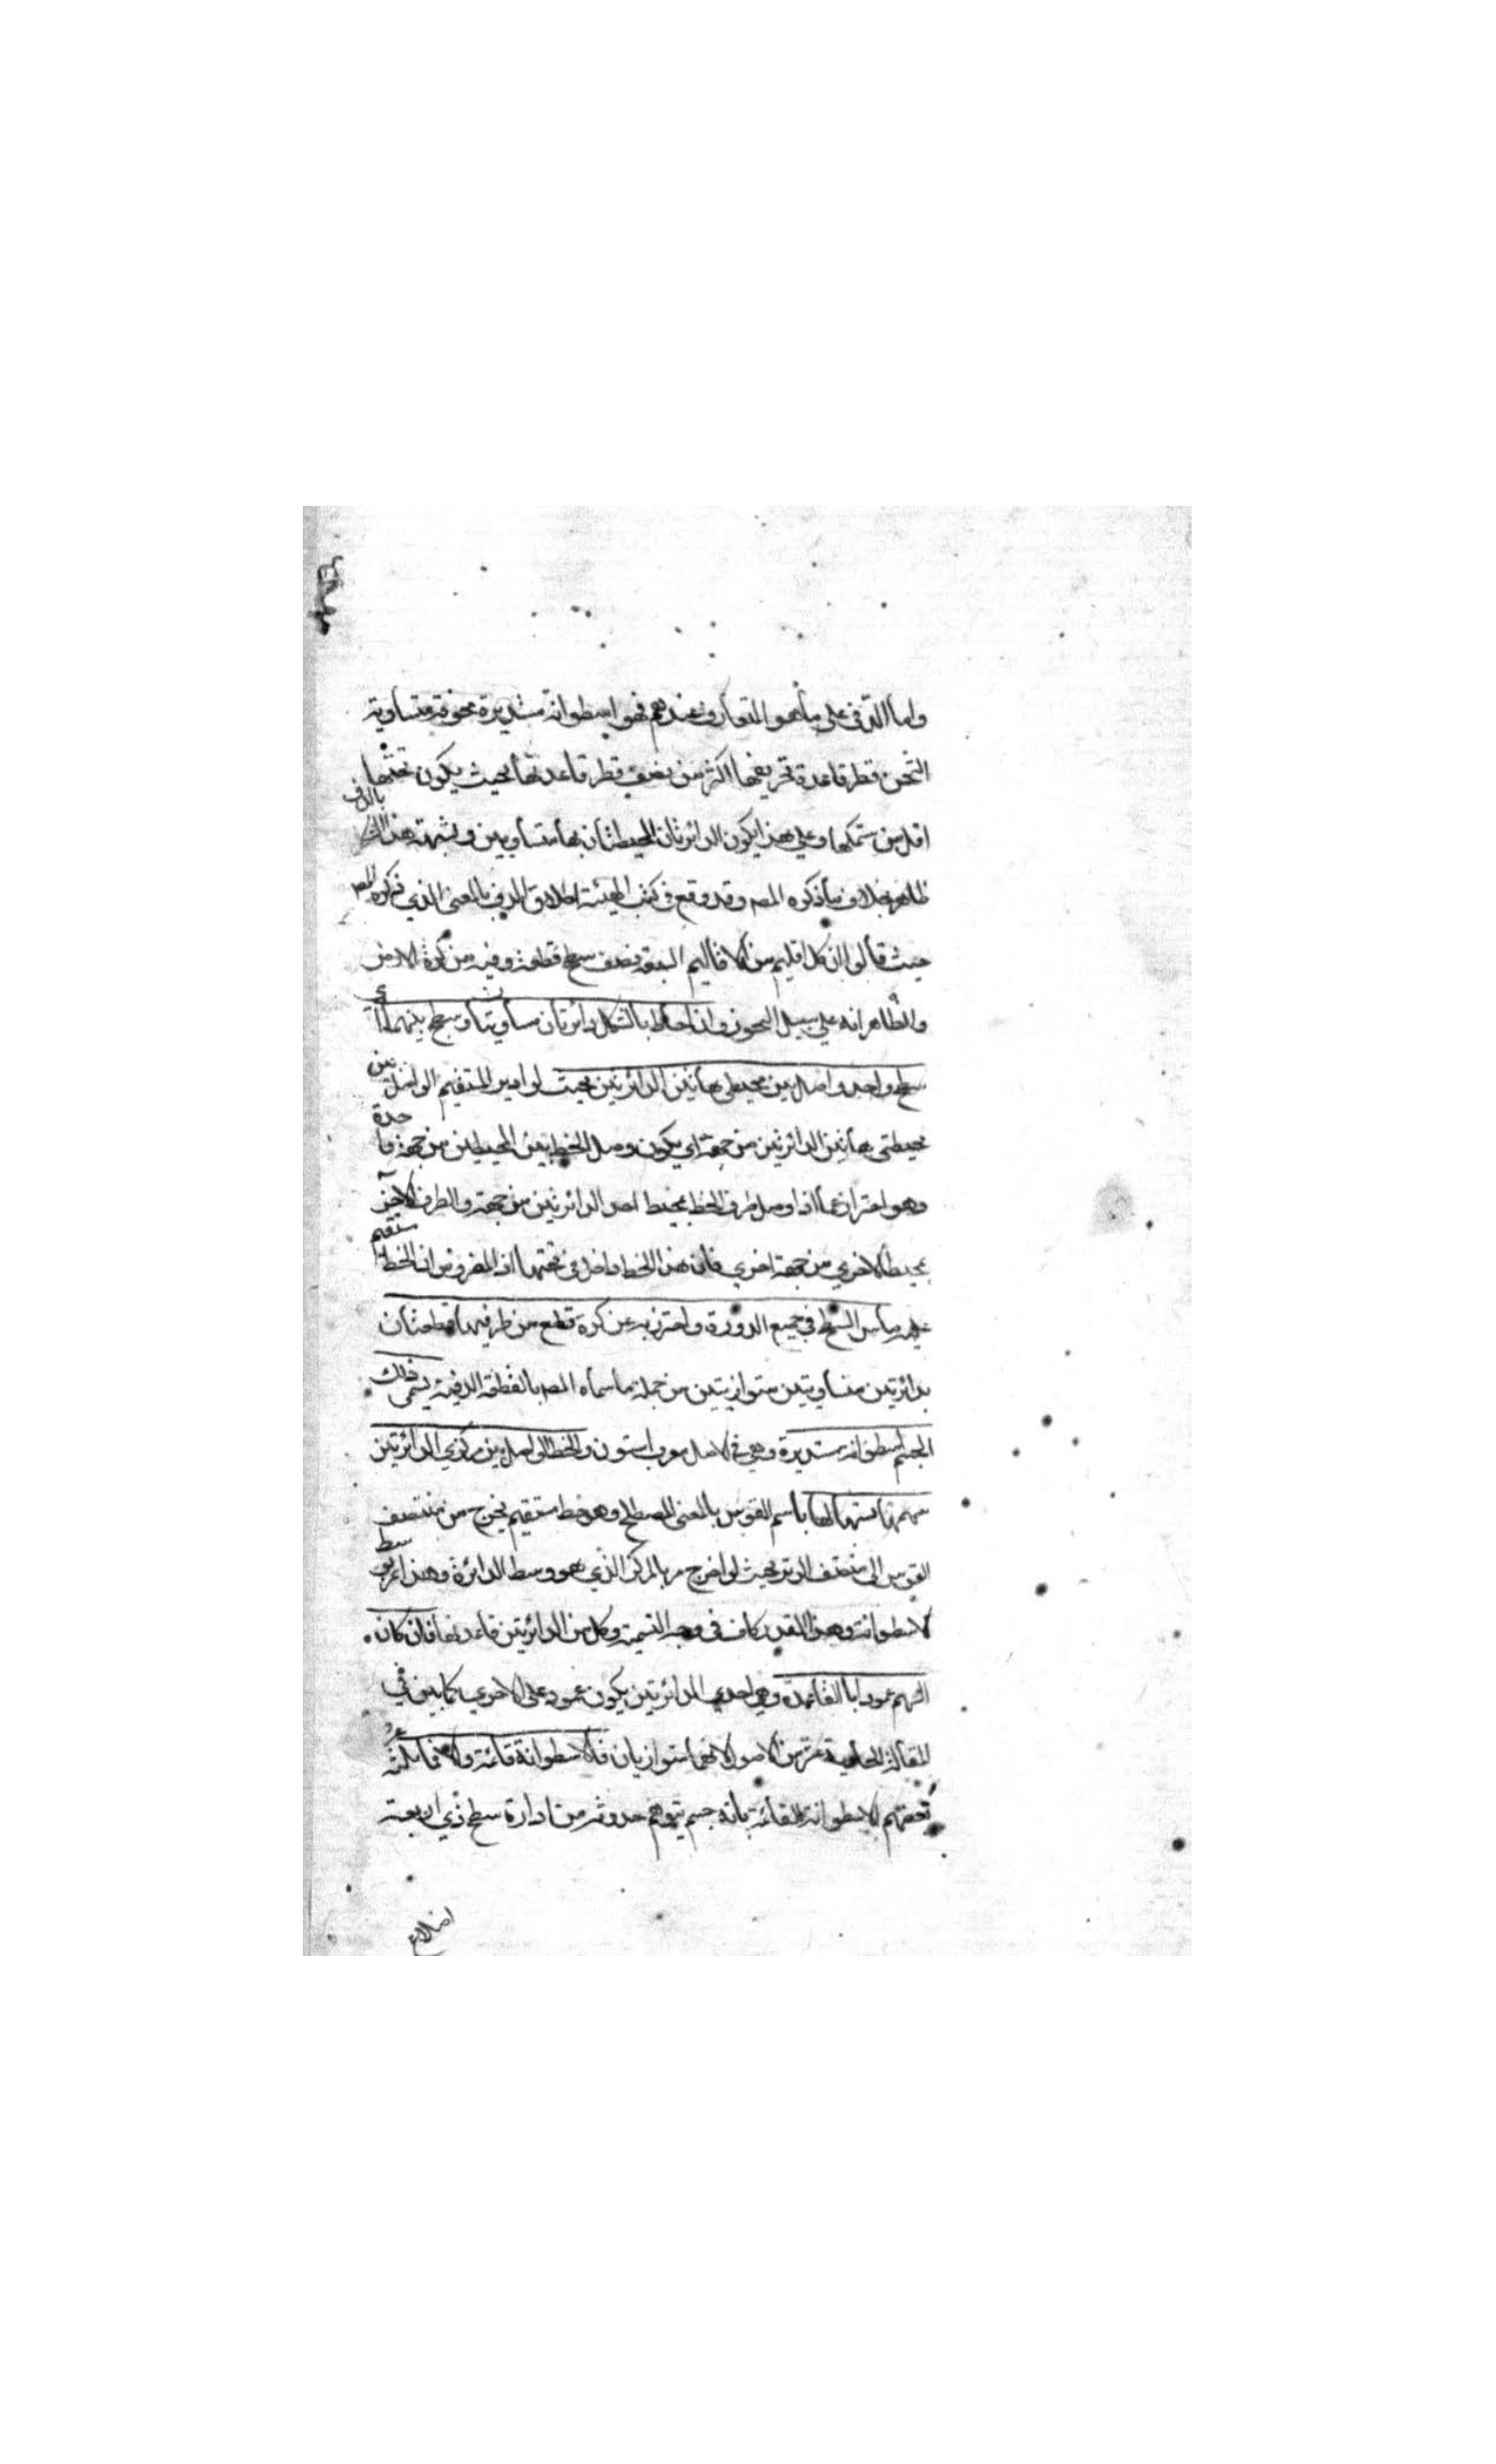 واما الدف على ما هو المتعارف عندهم فهو اسطوانة مستديرة مجوفة متساوية
الثخن قطر قاعدة تجويفها اكثر من نصف قطر قاعدتها بحيث يكون ثخنها
اقل من سمكها وعلى هذا يكون الدائرتان المحيطتان بها متساويتين وتشبيه هذا الشكل بالدف
ظاهر بخلاف ما ذكره المصـ وقد وقع في كتب الهيئة اطلاق الدف بالمعنى الذي ذكره المصـ
حيث قالوا ان كل اقليم من الاقاليم السبعة نصف سطح قطعة دفية من كرة الارض
والظاهر انه على سبيل التجوز وان احاط بالشكل دائرتان متساويتان وسطح بينهما اي
سطح واحد واصل بين محيطي هاتين الدائرتين بحيث لو ادير المستقيم الواصل بين
محيطي هاتين الدائرتين من جهة اي يكون وصل الخط بين المحيطين من جهة واحدة
وهو احتراز عما اذا وصل طرف الخط بمحيط احد الدائرتين من جهة والطرف الآخر
بمحيط الاخرى من جهة اخرى فان هذا الخط داخل في ثخنها اذ المفروض ان الخط المستقيم
عليه ماس السطح في جميع الدورة واحترز به عن كرة قطع من طرفيها قطعتان
بدائرتين متساويتين متوازيتين من جملة ما سماه المصـ بالقطعة الدفية يسمى ذلك
الجسم اسطوانة مستديرة وهي في الاصل معرب استون والخط الواصل بين مركزي الدائرتين
سهمها تشبيها لها باسم القوس بالمعنى المصطلح وهو خط مستقيم يخرج من منتصف
القوس الى منتصف الوتر بحيث لو اخرج مر بالمركز الذي هو وسط الدائرة وهذا مر بوسط
الاسطوانة وهذا القدر كاف في وجه التسمية وكل من الدائرتين قاعدتها فان كان
السهم عمودا بالقاعدة وهي احدى الدائرتين يكون عمود على الاخرى كما بين في
المقالة الحادية عشر من الاصول لانهما متوازيان فالاسطوانة قائمة والا فمائلة
تعريفهم للاسطوانة القائمة بانه جسم يتوهم حدوثه من ادارة سطح ذي اربعة
اضلاع